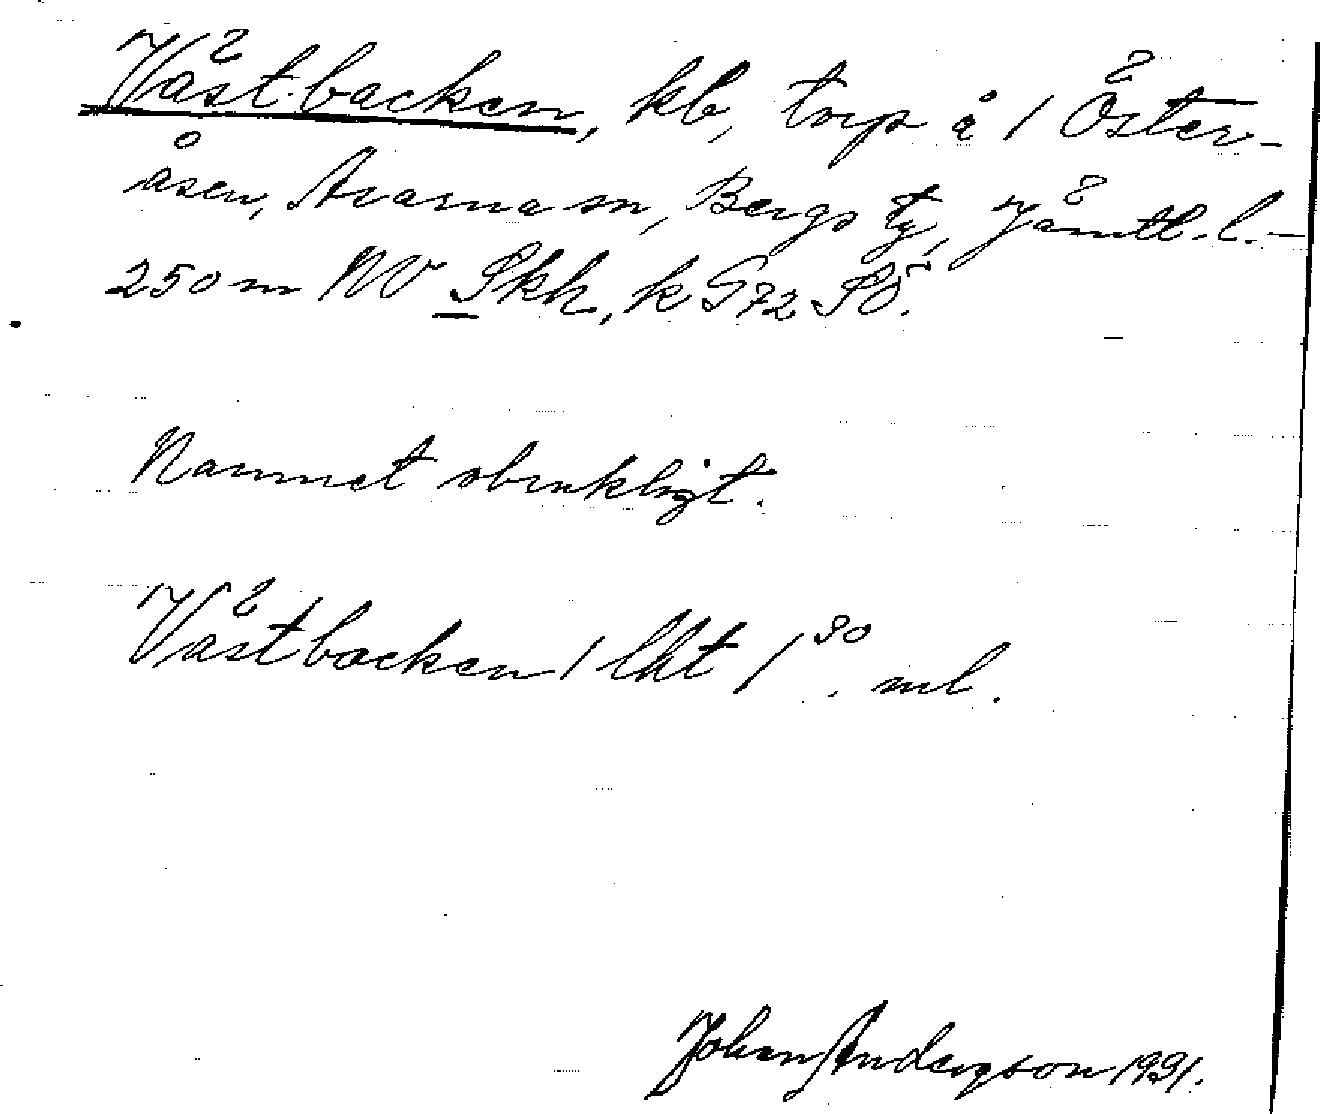 Västbacken, kb, torp å 1 Öster-
åsen, Ararna sn, Bergs tg, Jämtl. l. –
250 m NV Skh, k G72 SÖ.
Namnet obrukligt.
Västbacken 1 lht 1 30 ml.
Johan Anderzson 1931.